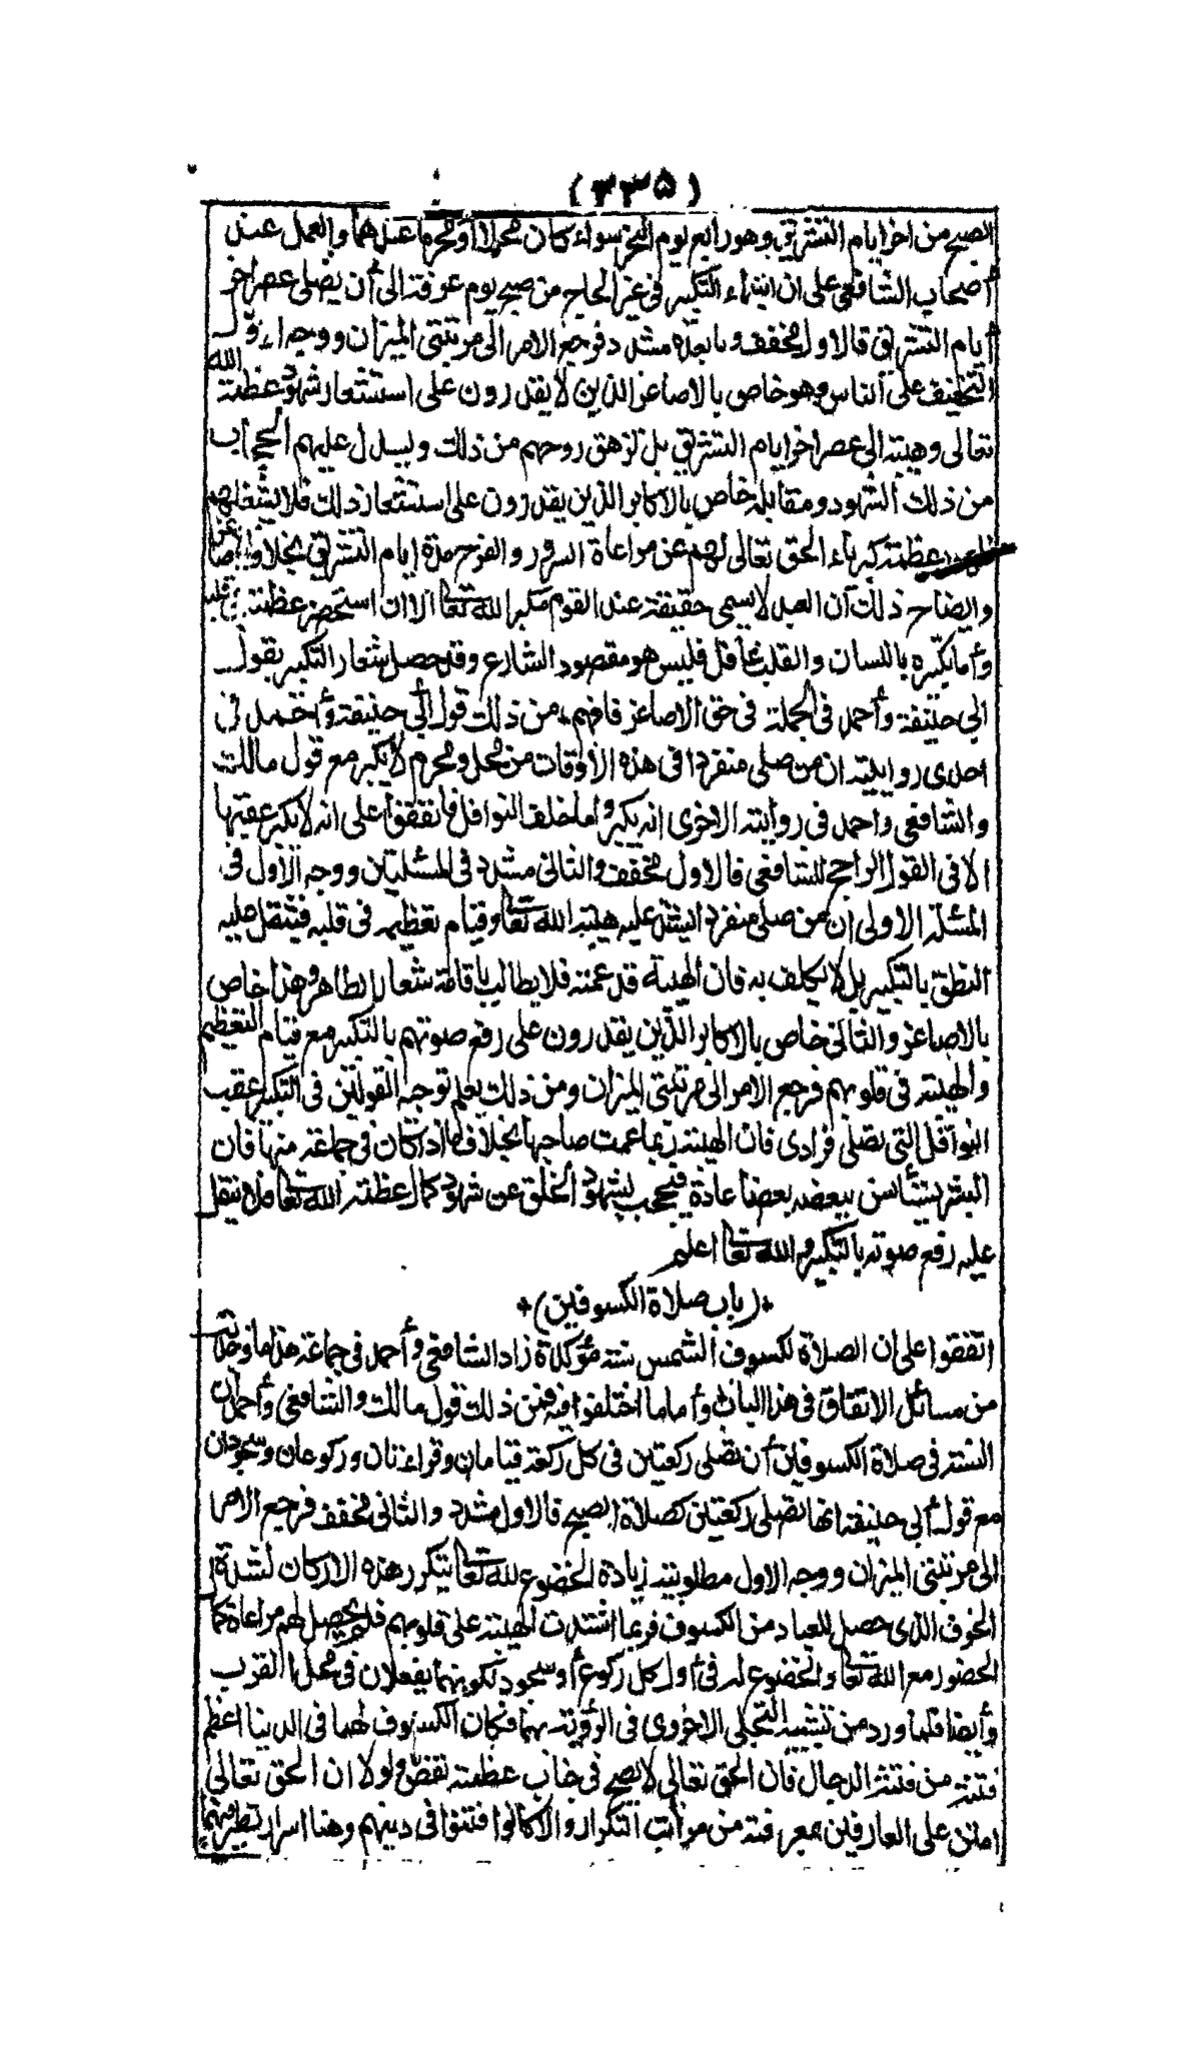 (٣٣٥)
الصبح من اخر ايام التشريق وهو رابع يوم النحر سواء كان محلا او محرما عندهما والعمل عند
أصحاب الشافعي على ان ابتداء التكبير في غير الحاج من صبح يوم عرفة الى أن يصلى عصر اخر
أيام التشريق فالاول مخفف وما بعده مشدد فرجع الامر الى مرتبتي الميزان ووجه الاول
التخفيف على الناس وهو خاص بالاصاغر الذين لا يقدرون على استشعار شهود عظمة الله
تعالى وهيبته الى عصر اخر ايام التشريق بل تزهق روحهم من ذلك ويسدل عليهم الحجاب
من ذلك الشهود ومقابله خاص بالاكابر الذين يقدرون على استشعار ذلك فلا يشغلهم
عظمة كبرياء الحق تعالى لهم عن مراعاة السرور والفرح مدة ايام التشريق بخلاف الاصاغر
وايضاح ذلك أن العبد لا يسمى حقيقة عند القوم مكبرا لله تعالى الا ان استحضر عظمته في قلبه
وأما تكبيره باللسان والقلب غافل فليس هو مقصود الشارع وقد حصل شعار التكبير بقول
ابي حنيفة وأحمد في الجملة في حق الاصاغر فافهم * من ذلك قول أبي حنيفة وأحمد في
احدى روايتيه ان من صلى منفردا في هذه الأوقات من محل ومحرم لا يكبر مع قول مالك
والشافعي وأحمد في روايته الاخرى انه يكبر وأما خلف النوافل فاتفقوا على انه لا يكبر عقبها
الا في القول الراجح للشافعي فالاول مخفف والثاني مشدد في المسئلتين ووجه الأول في
المسئلة الاولى ان من صلى منفردا تشتد عليه هيبة الله تعالى وقيام تعظيمه في قلبه فيثقل عليه
النطق بالتكبير بل لا يكلف به فان الهيبة قد عمته فلا يطالب باقامة شعار الظاهر وهذا خاص
بالاصاغر والثاني خاص بالاكابر الذين يقدرون على رفع صوتهم بالتكبير مع قيام التعظيم
والهيبة في قلوبهم فرجع الامر الى مرتبتي الميزان ومن ذلك يعلم توجيه القولين في التكبير عقب
النوافل التي تصلى فرادى فان الهيبة ربما عمت صاحبها بخلاف ما اذا كان في جماعة منها فان
البشر يستأنس ببعضه بعضا عادة فيحجب بشهود الخلق عن شهود كمال عظمة الله تعالى فلا يثقل
عليه رفع صوته بالتكبير والله تعالى اعلم
*(باب صلاة الكسوفين)*
اتفقوا على ان الصلاة لكسوف الشمس سنة مؤكدة زاد الشافعي وأحمد في جماعة هذا ما وجدته
من مسائل الاتفاق في هذا الباب وأما ما اختلفوا فيه فمن ذلك قول مالك والشافعي وأحمد ان
السنة في صلاة الكسوفين أن تصلى ركعتين في كل ركعة قيامان وقراءتان وركوعان وسجودان
مع قول أبي حنيفة انها تصلى ركعتين كصلاة الصبح فالاول مشدد والثاني مخفف فرجع الامر
الى مرتبتي الميزان ووجه الاول مطلوبية زيادة الخضوع لله تعالى بتكرر هذه الاركان لشدة
الخوف الذي حصل للعباد من الكسوف فربما اشتدت الهيبة على قلوبهم فلم يحصل لهم مراعاة كمال
الحضور مع الله تعالى والخضوع له في أول كل ركوع أو سجود لكونهما يفعلان في محل القرب
وأيضا فلما ورد من تشبيه التجلي الاخروي في الرؤية بهما فكان الكسوف لهما في الدنيا اعظم
فتنة من فتنة الدجال فان الحق تعالى لا يصح في جناب عظمته نقص ولولا ان الحق تعالى
امتن على العارفين بمعرفته من مرآت التكرار والا كانوا فتنوا في دينهم وهنا اسرار